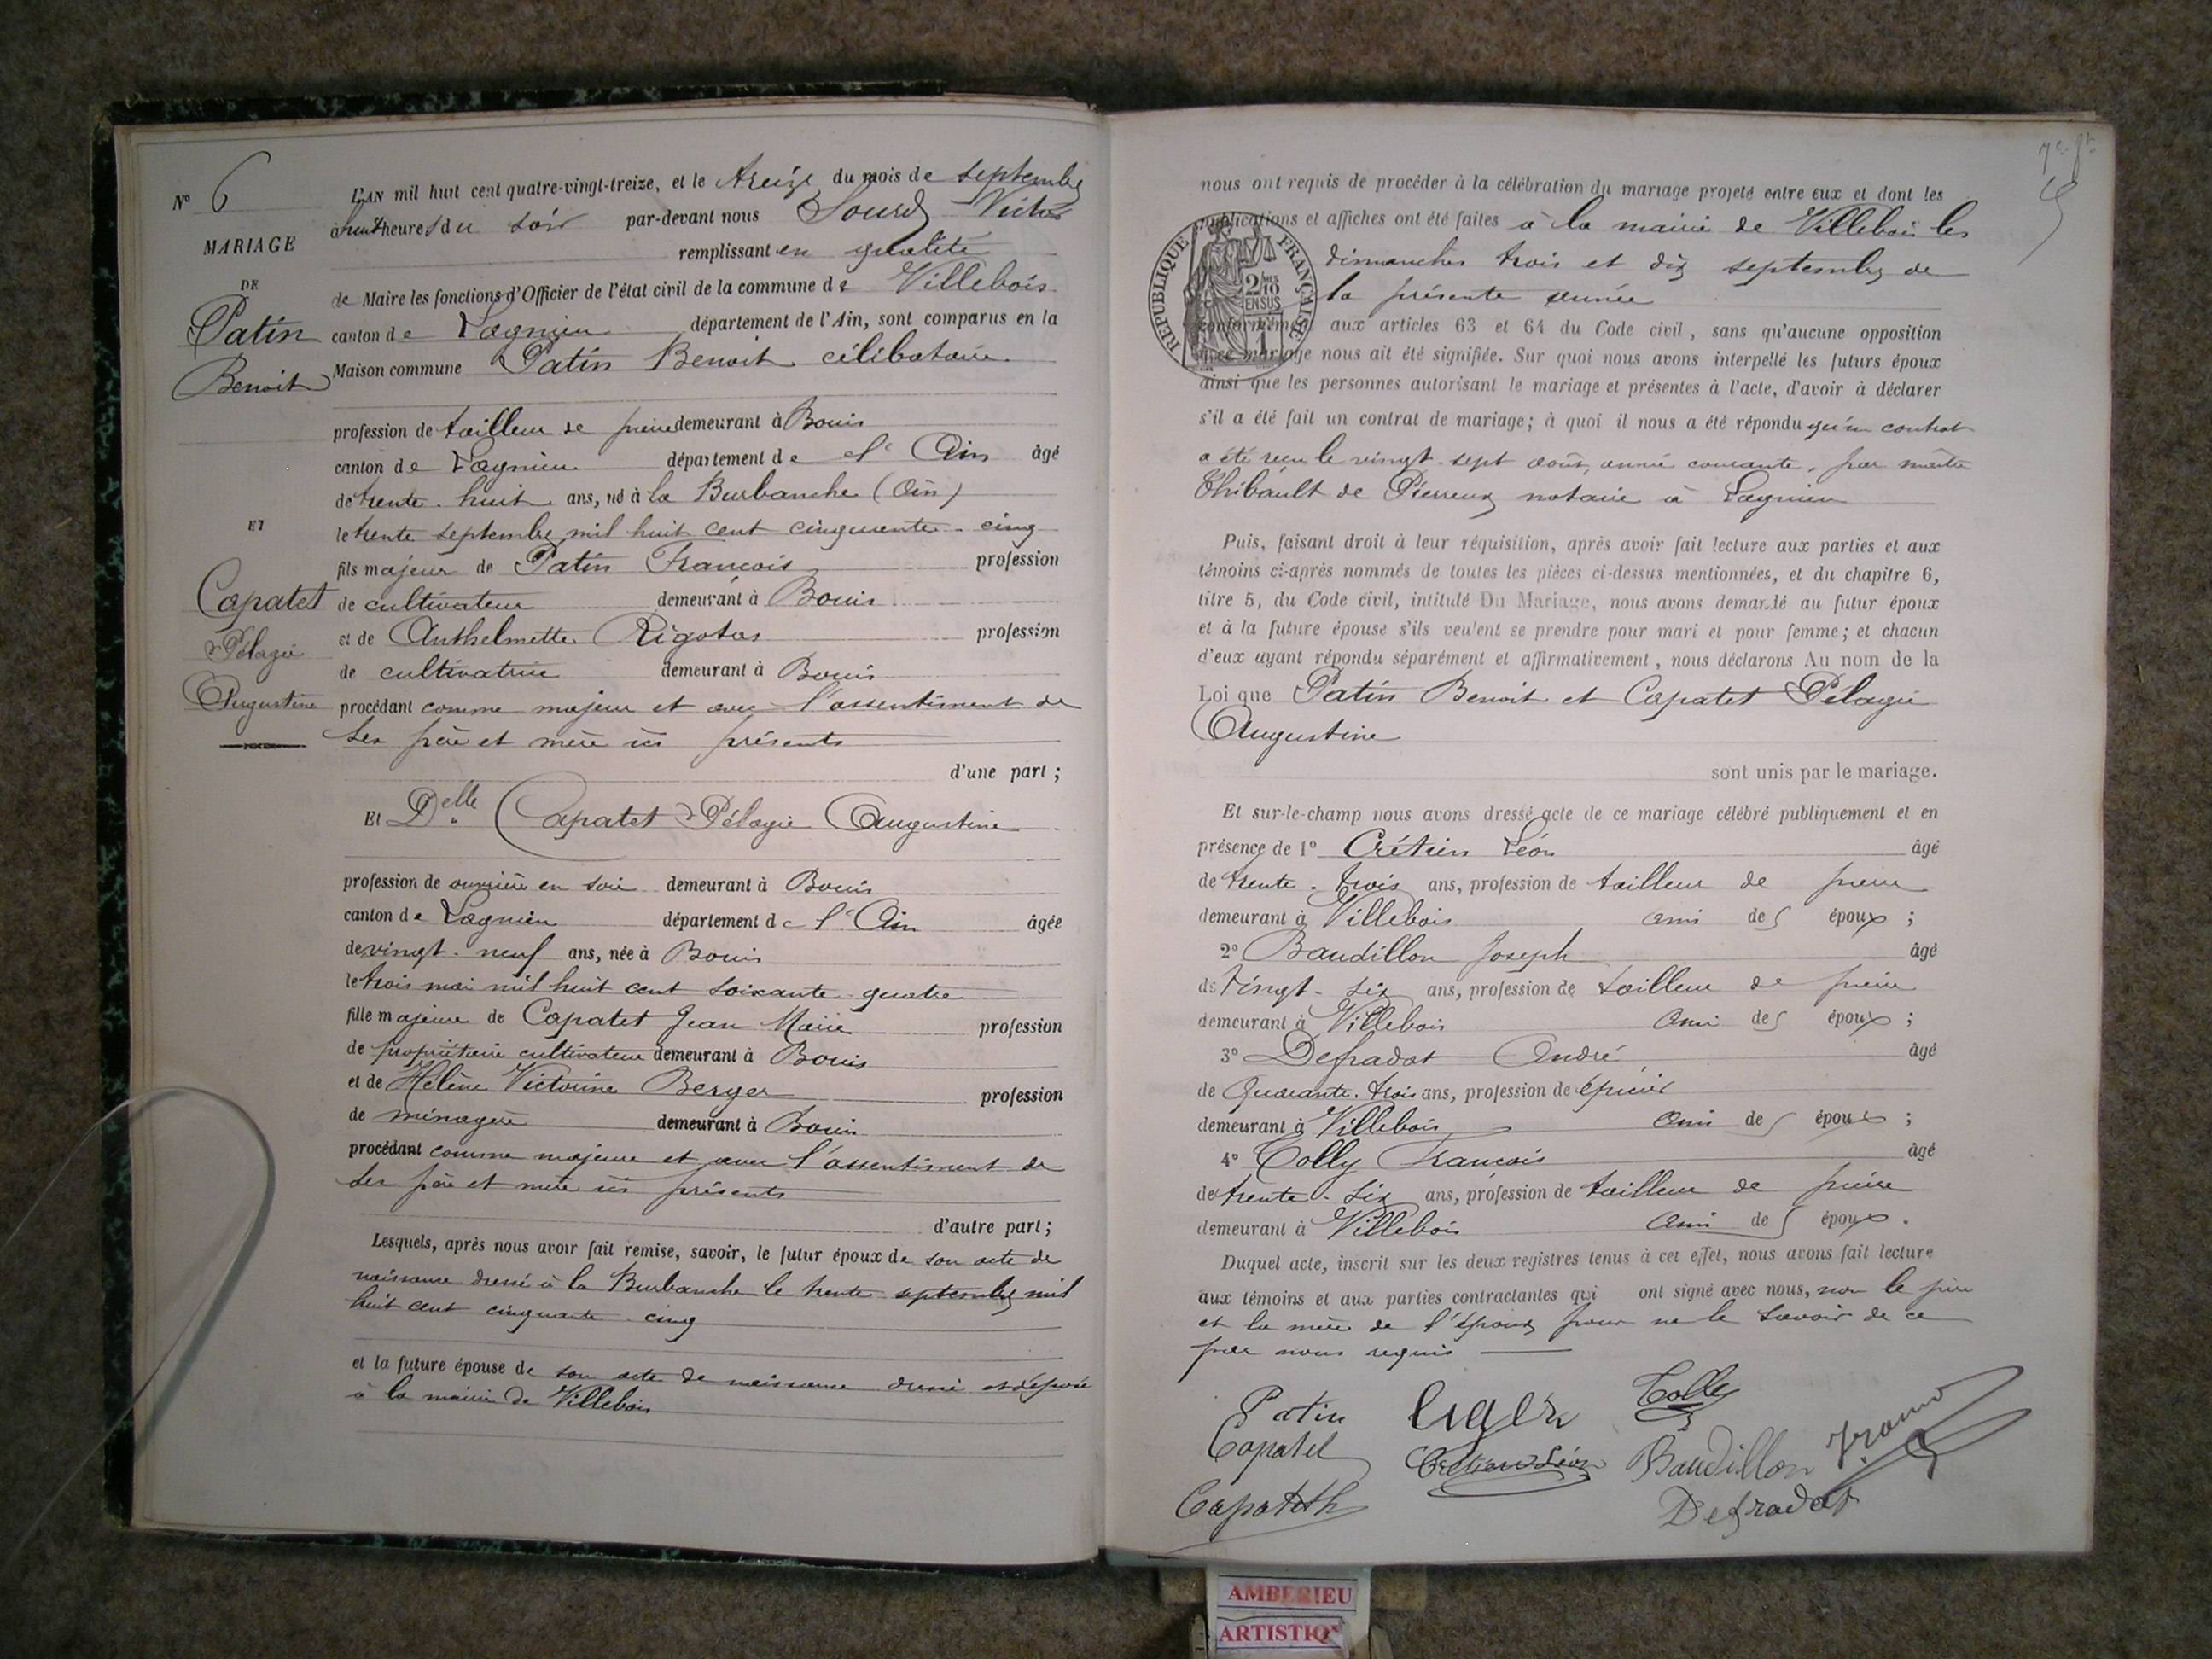 N° 6
MARIAGE
DE
Patin
Benoit
ET
Capatet
Pélagie
Augustine
L'AN mil huit cent quatre-vingt-treize, et le treize du mois de septembre
à huit heures du soir par-devant nous Sourd Victor
remplissant en qualité
de Maire les fonctions d'Officier de l'état civil de la commune de Villebois
canton de Lagnieu département de l'Ain, sont comparus en la
Maison commune Patin Benoit célibataire
profession de tailleur de pierre demeurant à Bouis
canton de Lagnieu département de l'Ain âgé
de trente-huit ans, né à la Burbanche (Ain)
le trente septembre mil huit cent cinquante-cinq
fils majeur de Patin François profession
de cultivateur demeurant à Bouis
et de Anthelmette Rigotas profession
de cultivatrice demeurant à Bouis
procédant comme majeur et avec l'assentiment de
ses père et mère ici présents
d'une part ;
Et Delle Capatet Pélagie Augustine
profession de ouvrière en soie demeurant à Bouis
canton de Lagnieu département de l'Ain âgée
de vingt-neuf ans, née à Bouis
le trois mai mil huit cent soixante-quatre
fille majeure de Capatet Jean Marie profession
de propriétaire cultivateur demeurant à Bouis
et de Hélène Victorine Berger profession
de ménagère demeurant à Bouis
procédant comme majeure et avec l'assentiment de
ses père et mère ici présents
d'autre part ;
Lesquels, après nous avoir fait remise, savoir, le futur époux de son acte de
naissance dressé à la Burbanche le trente septembre mil
huit cent cinquante-cinq
et la future épouse de son acte de naissance dressé et déposé
à la mairie de Villebois
nous ont requis de procéder à la célébration du mariage projeté entre eux et dont les
publications et affiches ont été faites à la mairie de Villebois les
dimanches trois et dix septembre de
la présente année
conformément aux articles 63 et 64 du Code civil, sans qu'aucune opposition
à ce mariage nous ait été signifiée. Sur quoi nous avons interpellé les futurs époux
ainsi que les personnes autorisant le mariage et présentes à l'acte, d'avoir à déclarer
s'il a été fait un contrat de mariage ; à quoi il nous a été répondu qu'un contrat
a été reçu le vingt-sept août, année courante, par maître
Thibault de Pierreux notaire à Lagnieu
RÉPUBLIQUE FRANÇAISE
2/10 EN SUS
1
Puis, faisant droit à leur réquisition, après avoir fait lecture aux parties et aux
témoins ci-après nommés de toutes les pièces ci-dessus mentionnées, et du chapitre 6,
titre 5, du Code civil, intitulé Du Mariage, nous avons demandé au futur époux
et à la future épouse s'ils veulent se prendre pour mari et pour femme ; et chacun
d'eux ayant répondu séparément et affirmativement, nous déclarons Au nom de la
Loi que Patin Benoit et Capatet Pélagie
Augustine
sont unis par le mariage.
Et sur-le-champ nous avons dressé acte de ce mariage célébré publiquement et en
présence de 1° Crétien Léon âgé
de trente-trois ans, profession de tailleur de pierre
demeurant à Villebois ami des époux ;
2° Baudillon Joseph âgé
de vingt-six ans, profession de tailleur de pierre
demeurant à Villebois ami des époux ;
3° Defradat André âgé
de Quarante-trois ans, profession de épicier
demeurant à Villebois ami des époux ;
4° Tolly François âgé
de trente-six ans, profession de tailleur de pierre
demeurant à Villebois ami des époux.
Duquel acte, inscrit sur les deux registres tenus à cet effet, nous avons fait lecture
aux témoins et aux parties contractantes qui ont signé avec nous, non le père
et la mère de l'époux pour ne le savoir de ce
par nous requis
Patin
Capatet
Crétien Léon
Baudillon
Defradat
AMBERIEU
ARTISTIQ